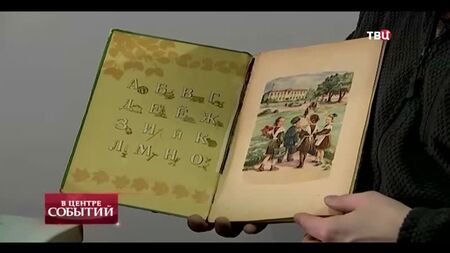 ТВЦ
А Б В Г
Д Е Ё Ж
З И Й К
Л М Н О
В ЦЕНТРЕ
СОБЫТИЙ